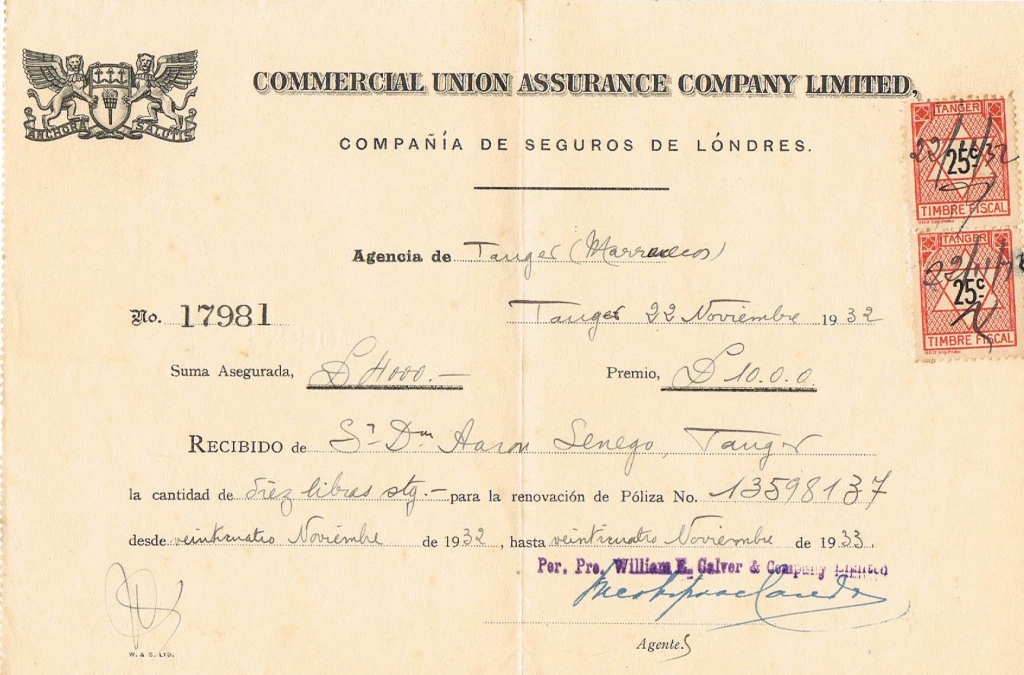 ANCHORA SALUTIS
COMMERCIAL UNION ASSURANCE COMPANY LIMITED,
COMPAÑÍA DE SEGUROS DE LÓNDRES.
TANGER
22/11/32
25c
TIMBRE FISCAL
TANGER
22/11/32
25c
TIMBRE FISCAL
Agencia de Tanger (Marruecos)
No. 17981
Tanger 22 Noviembre 1932
Suma Asegurada, £ 4000.- Premio, £ 10.0.0.
RECIBIDO de Sr Dn Aaron Senego, Tanger
la cantidad de diez libras stg.- para la renovación de Póliza No. 13598137
desde veinticuatro Noviembre de 1932, hasta veinticuatro Noviembre de 1933.
Per. Pro. William E. Calver & Company Limited
Agentes
W. & S. LTD.